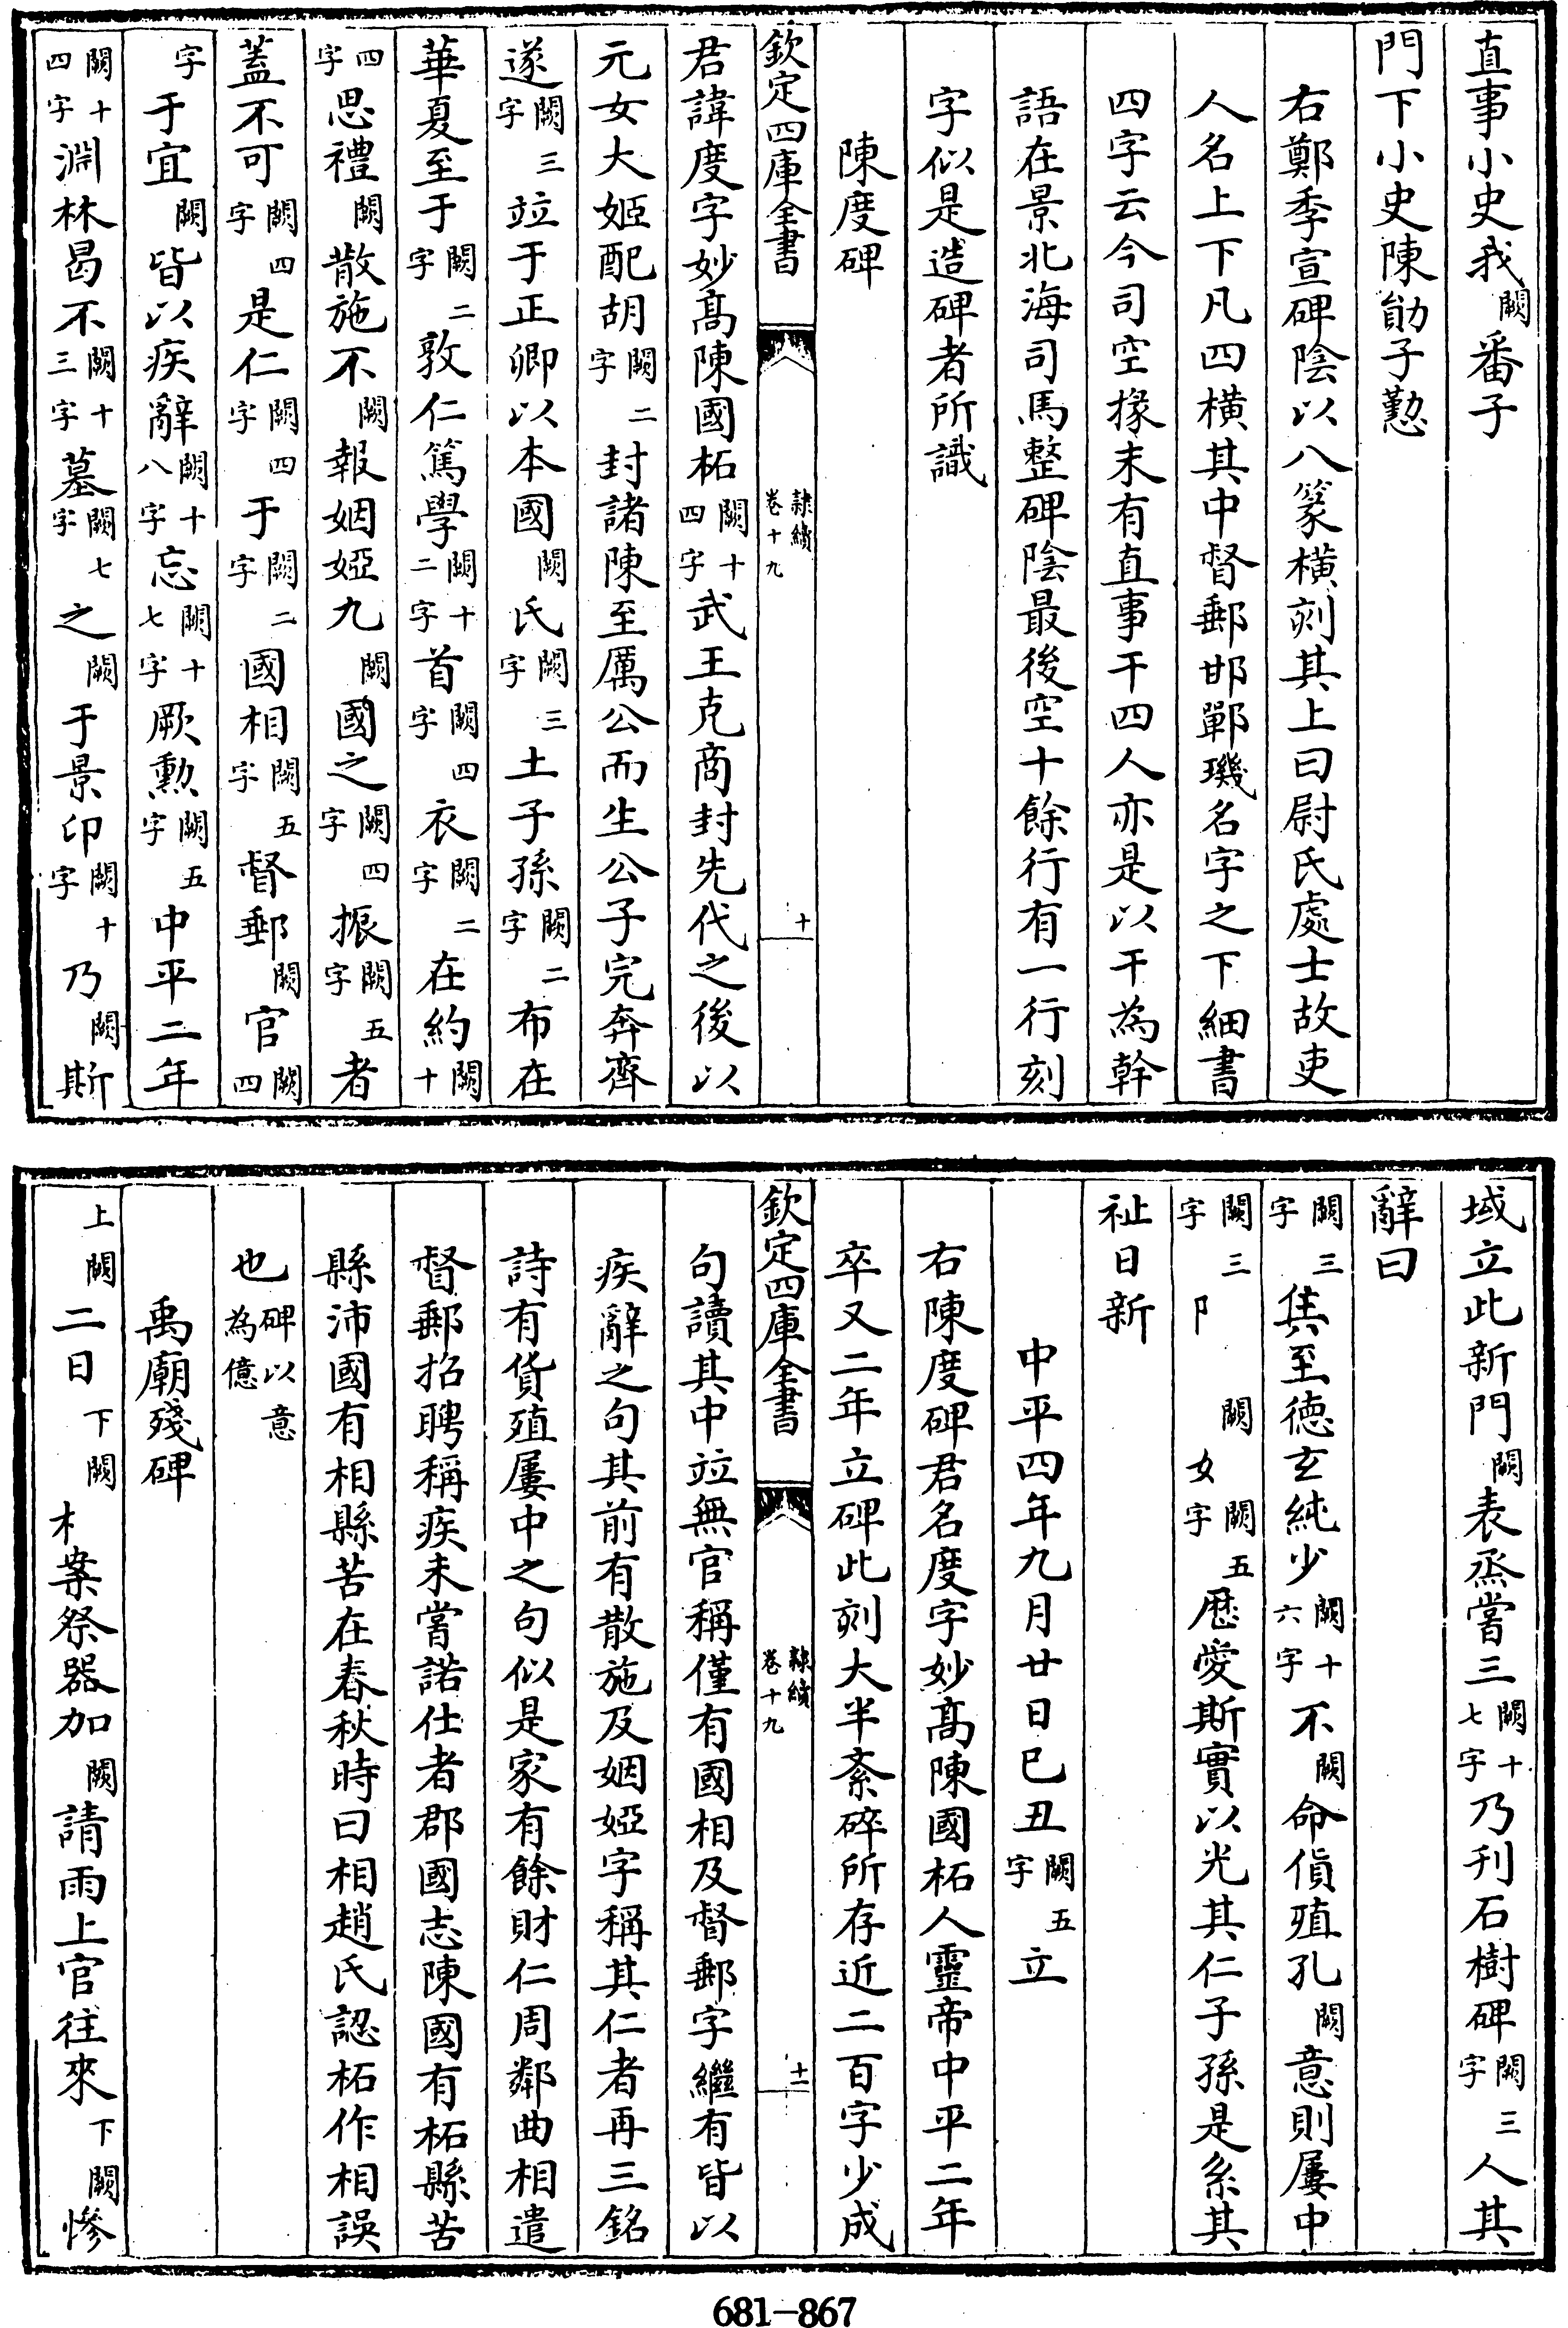 直事小史我闕番子
門下小史陳勛子懃
右鄭季宣碑陰以八篆横刻其上曰尉氏處士故吏
人名上下凡四横其中督郵邯鄲璣名字之下細書
四字云今司空掾末有直事干四人亦是以干為幹
語在景北海司馬整碑陰最後空十餘行有一行刻
字似是造碑者所識
陳度碑
欽定四庫全書 隸續卷十九 十
君諱度字妙高陳國柘闕十四字武王克商封先代之後以
元女大姬配胡闕二字封諸陳至厲公而生公子完奔齊
遂闕三字竝于正卿以本國闕氏闕三字土子孫闕二字布在
華夏至于闕二字敦仁篤學闕十二字首闕四字衣闕二字在約闕十
四字思禮闕散施不闕報姻婭九闕國之闕四字振闕五字者
蓋不可闕四字是仁闕四字于闕二字國相闕五字督郵闕官闕四
字于宜闕皆以疾辭闕十八字忘闕十七字厥勲闕五字中平二年
闕十四字淵林曷不闕十三字墓闕七字之闕于景印闕十字乃闕斯
域立此新門闕表烝嘗三闕十七字乃刋石樹碑闕三字人其
辭曰
闕三字雋至德玄純少闕十六字不闕命偩殖孔闕意則屢中
闕三字卩闕女闕五字歴愛斯實以光其仁子孫是糸其
祉日新
中平四年九月廿日巳丑闕五字立
右陳度碑君名度字妙高陳國柘人靈帝中平二年
卒又二年立碑此刻大半紊碎所存近二百字少成
欽定四庫全書 隸續卷十九 十一
句讀其中竝無官稱僅有國相及督郵字繼有皆以
疾辭之句其前有散施及姻婭字稱其仁者再三銘
詩有貨殖屢中之句似是家有餘財仁周鄰曲相遣
督郵招聘稱疾未嘗諾仕者郡國志陳國有柘縣苦
縣沛國有相縣苦在春秋時曰相趙氏認柘作相誤
也碑以意為億
禹廟殘碑
上闕二日下闕木案祭器加闕請雨上官往來下闕慘
681-867